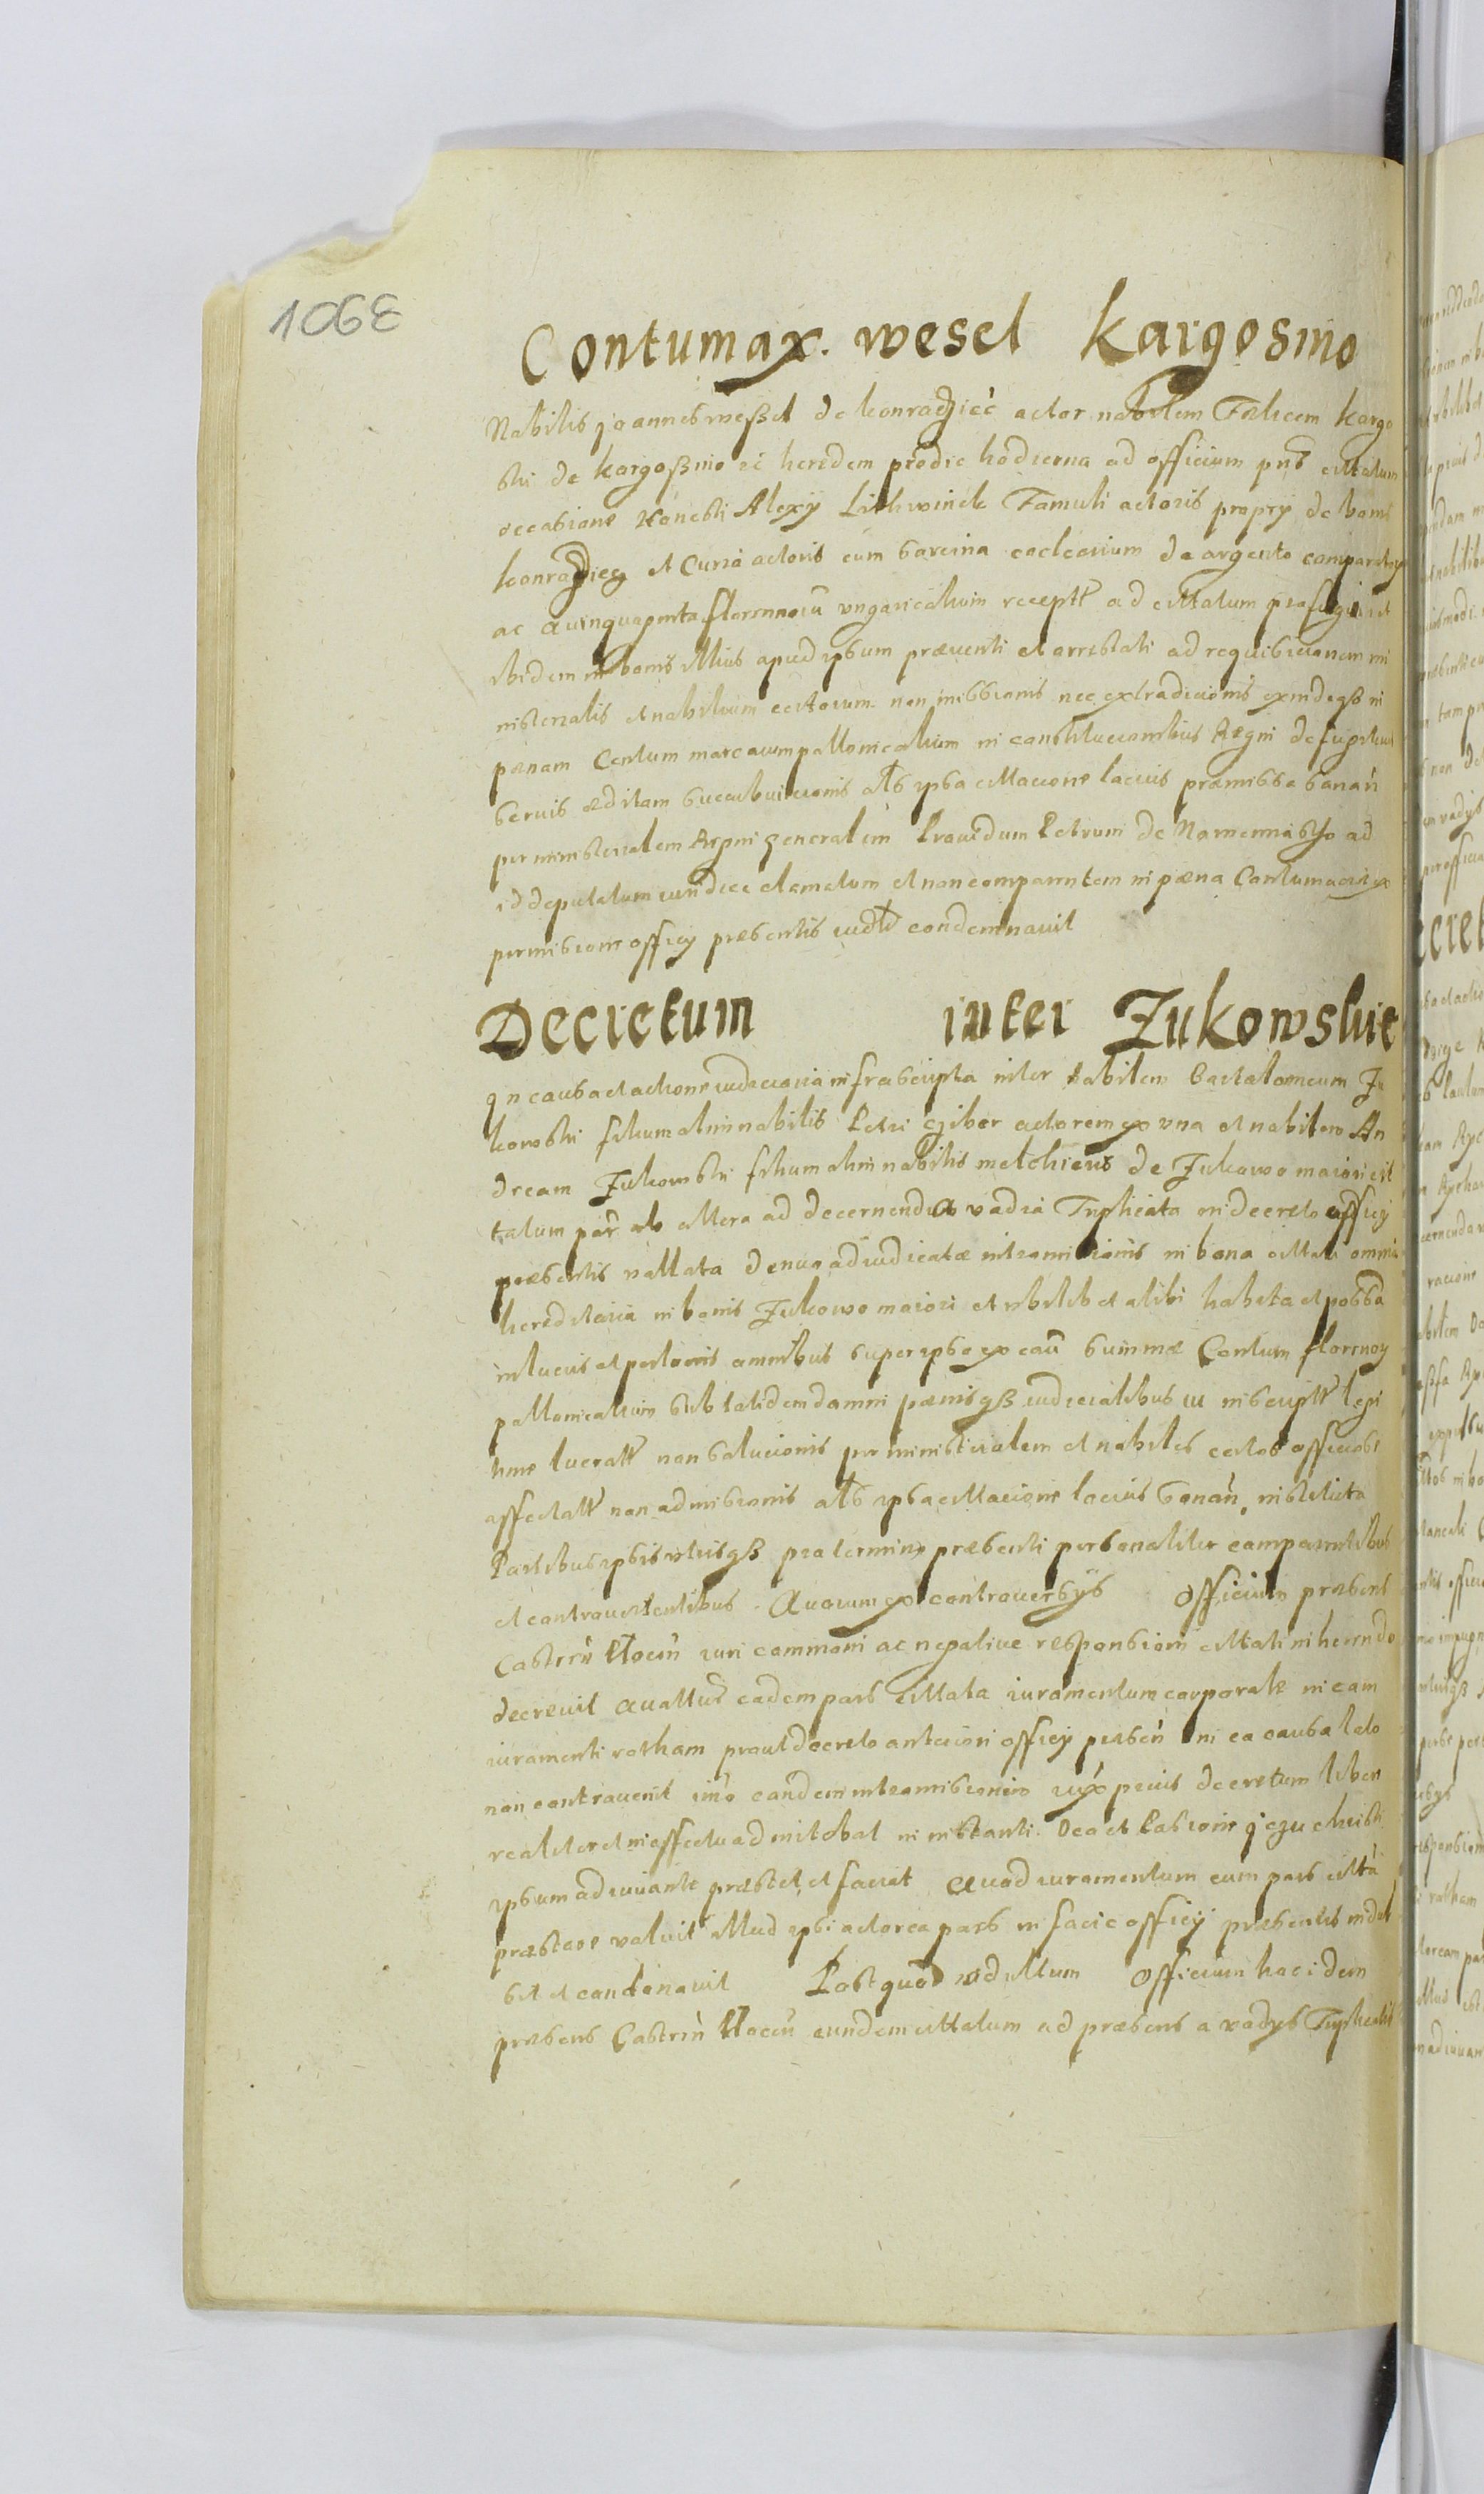 106E
Contumax. wesel kargosino
Nobilis joannes weßel de konradziec actor nobilem Felicem kargo
ski de kargoßino ac heredem pro die hodierna ad officium pns citatum
occasione Honesti Alexy Famuli actoris propry de bonis
et Curia actoris cum sarcina coclearium de argento
ac Quinquaginta florenorum ungaricalium recept ad citatum
ibidem in bonis illius apud ipsum præventi et arrestati ad requisicionem mi
nisterialis et nobilium certorum non missionis nec extradicionis exindeqß in
pænam Centum marcarum pollonicalium in constitucionibus Regni de fugitivis
servis æditam succubuicionis als ipsa cittacione lacius præmissa sonan
per ministerialem Regni generalem Providum Petrum de ad
id deputatum iuridice clamatum et non comparentem in pæna Contumacie ex
permissione officy præsentis iudt condemnavit
Decretum inter Zukowskie
jn causa et actione iudiciaria infrascripta inter Nobilem Bartolomeum Zu
kowski filium olim nobilis Petri actorem ex una et nobilem An
dream Zukowski filium olim nobilis melchieris de Zukowo maiori cit
tatum par ab altera ad decernenda vadia Triplicata in decreto officy
præsentis vallata denuo adiudicatæ intromissionis in bona cittati omnia
hereditaria in bonis Zukowo maiori et ubilibet alibi habita et possa
in lucris et perlucris omnibus super ipso ex cau summæ Centum florenoy
pollonicalium sub totidem damni pænisqß iudicialibus in inscript legi
time lucratt non solucionis per ministerialem et nobiles certos officiose
affectatt non admissionis als ipsa cittacione lacius sonan. inscripta
Partibus ipsis utrisqß pro termino præsenti personaliter comparentibus
et controvertentibus. Quarum ex controversÿs officium præsens
Castrén Ciocin iuri communi ac negative responsioni cittati inherendo
decrevit quattus eadem pars cittata iuramentum corporale in eam
iuramenti rotham prout decreto anteriori officy præsen in ea causa lato
non contravenit imo eandem intromissionem iux prius decretum liber
realiter et in effectu admitebat in instanti. Deo et Passione jezu christi
ipsum adiuvante præstet et faciat Quod iuramentum cum pars citta
præstare voluit illud ipsi actorea pars in facie officy præsentis indul
sit et condonavit Postquod idillum Officium hoc idem
præsens Castrén Ciocin eundem cittatum ad præsens a vadys Triplicatis